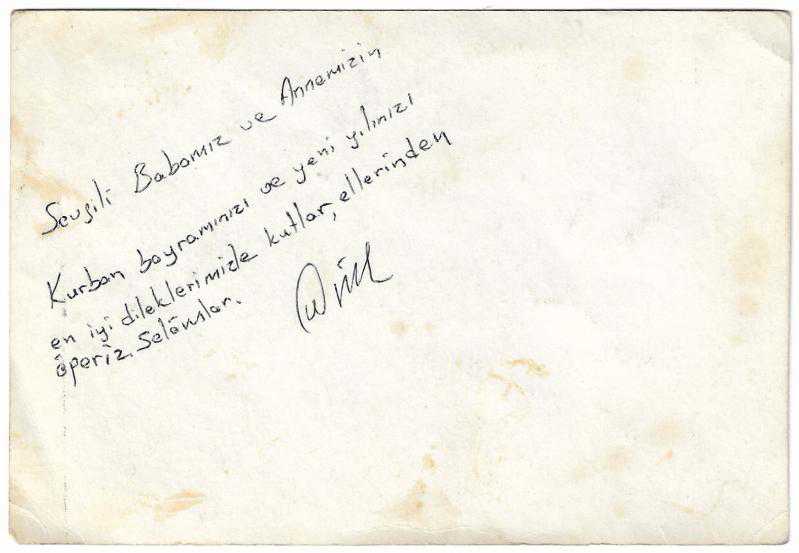 Sevgili Babamız ve Annemizin
Kurban bayramınızı ve yeni yılınızı
en iyi dileklerimizle kutlar, ellerinden
öperiz. Selâmlar.